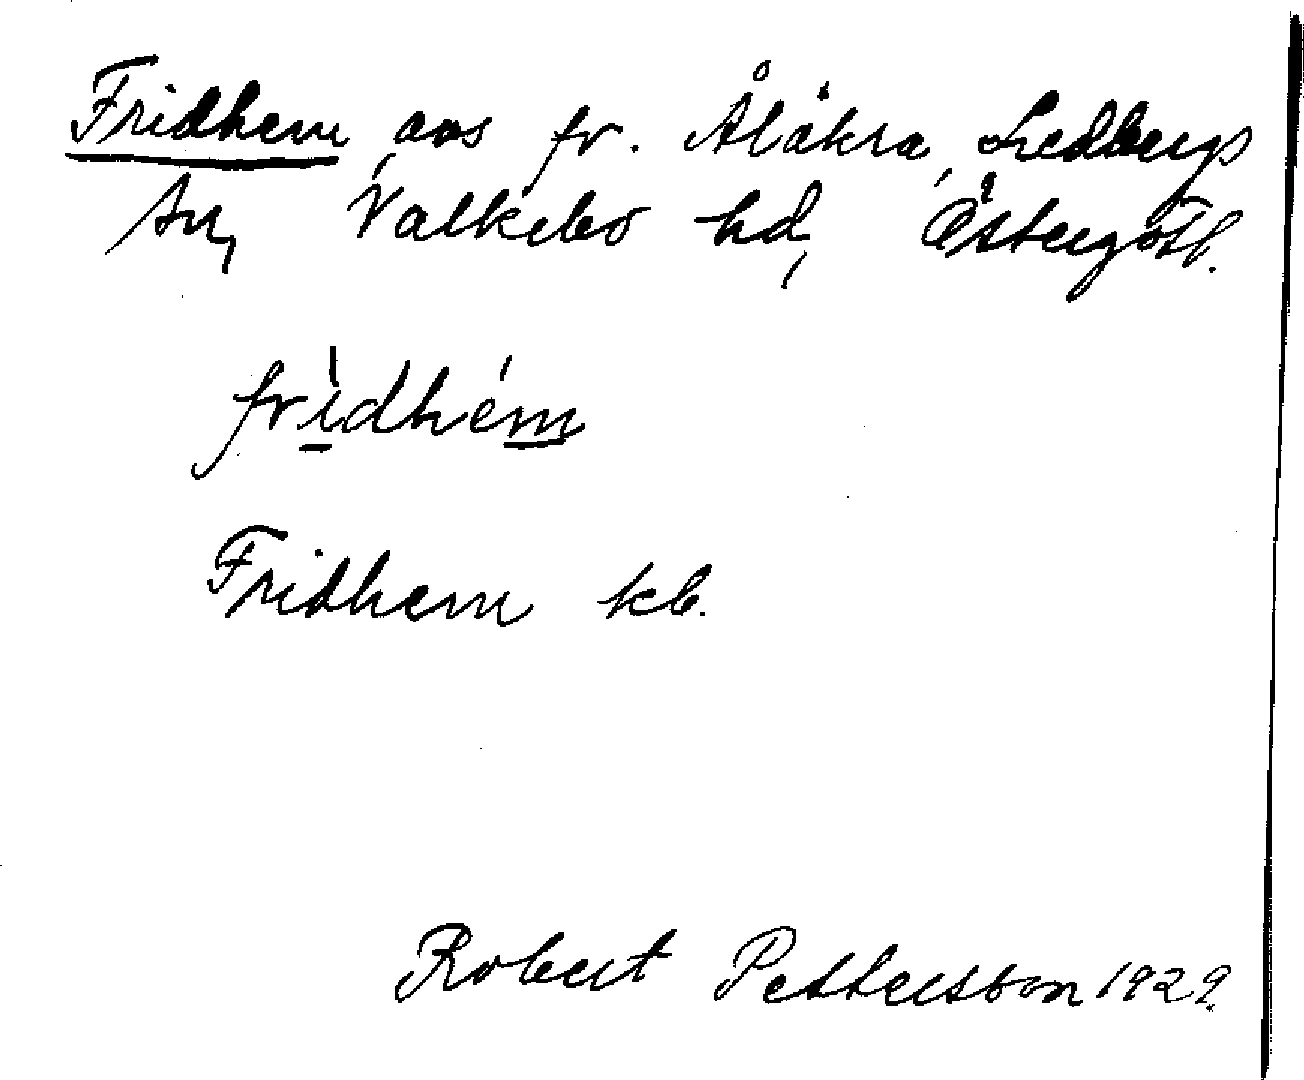 Fridhem avs fr. Ålåkra, Ledbergs
sn, Valkebo hd, Östergötl.
fridhém
Fridhem kb.
Robert Pettersson 1929.